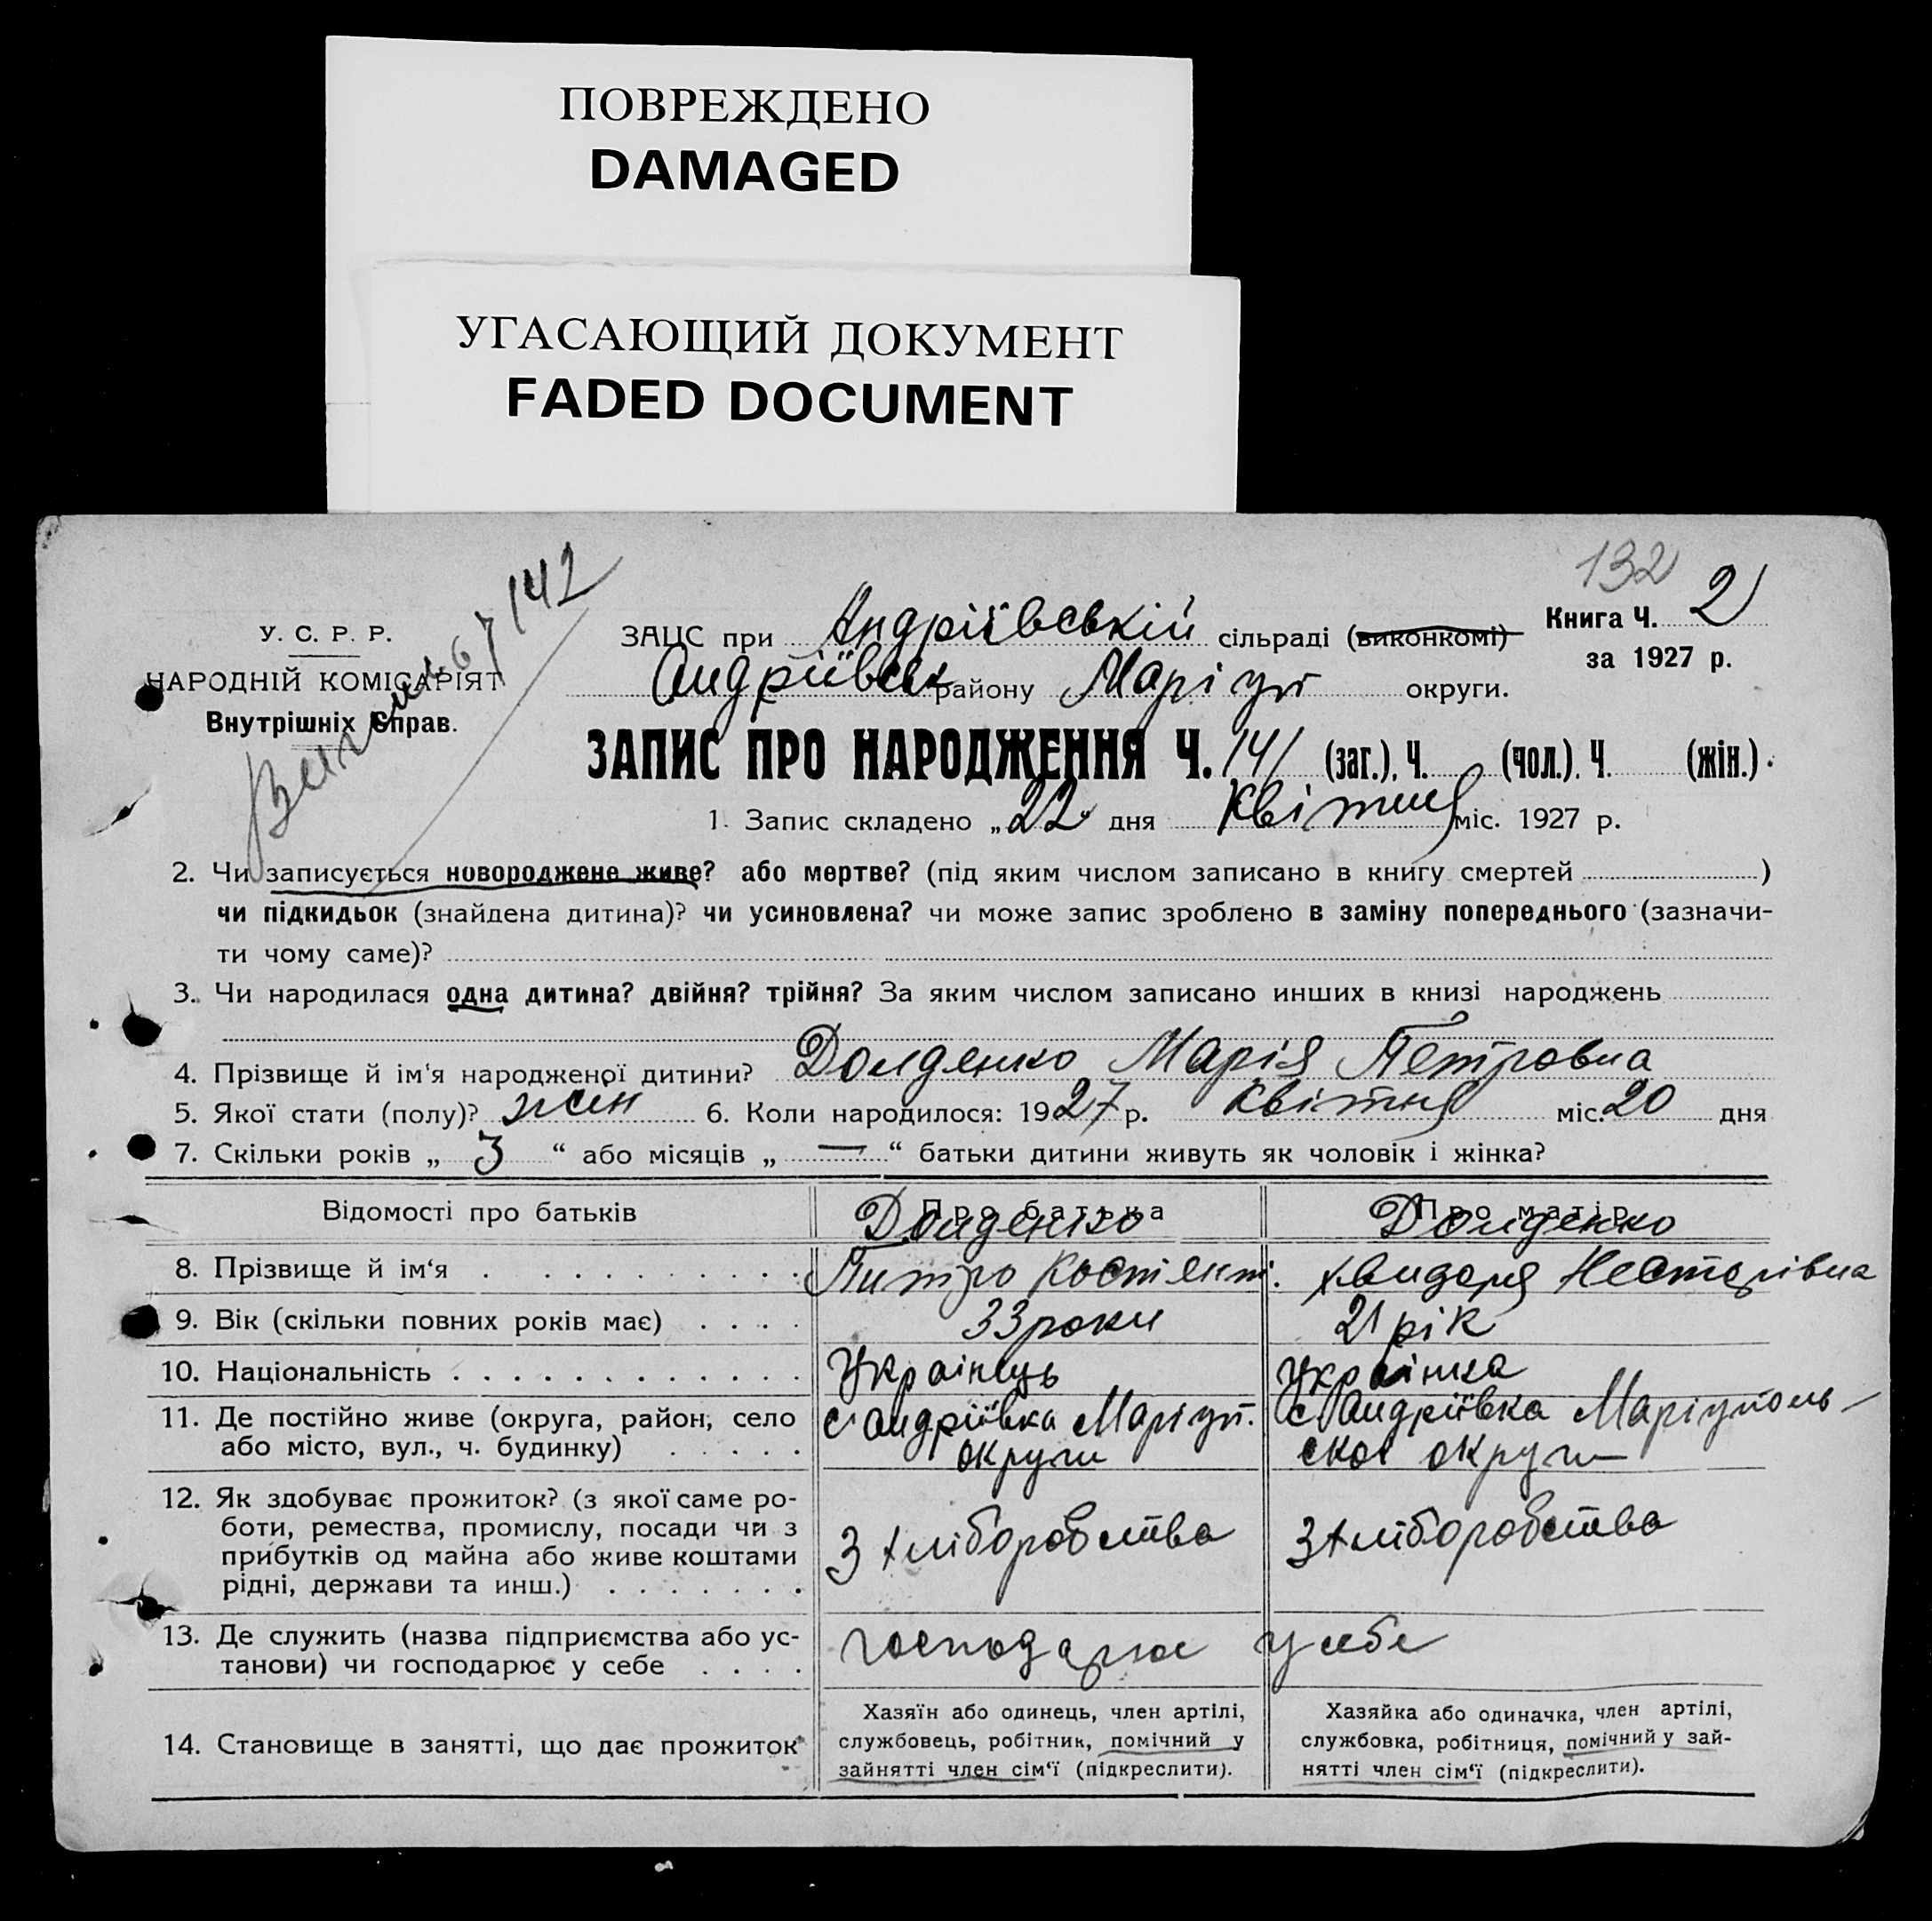 ПОВРЕЖДЕНО
DAMAGED
УГАСАЮЩИЙ ДОКУМЕНТ
FADED DOCUMENT
132
67 142
У. С. Р. Р.
НАРОДНІЙ КОМІСАРІЯТ
Внутрішніх Справ.
Книга Ч. 2
за 1927 р.
ЗАЦС при Андріївській сільраді (виконкомі)
Андріївськ району Маріуп округи.
ЗАПИС ПРО НАРОДЖЕННЯ Ч. 141 (заг.), Ч. (чол.). Ч. (жін.)
1. Запис складено „22" дня квітня міс. 1927 р.
2. Чи записується новороджене живе? або мертве? (під яким числом записано в книгу смертей )
чи підкидьок (знайдена дитина)? чи усиновлена? чи може запис зроблено в заміну попереднього (зазначи-
ти чому саме)?
3. Чи народилася одна дитина? двійня? трійня? За яким числом записано инших в книзі народжень
4. Прізвище й ім'я народженої дитини? Долденко Марія Петровна
5. Якої стати (полу)? жін 6. Коли народилося: 1927 р. квітня міс. 20 дня
7. Скільки років „ 3 “ або місяців „ — “ батьки дитини живуть як чоловік і жінка?
Відомості про батьків Про батька Про матір
Долденко Долденко
8. Прізвище й ім‘я Питро Костянт. Хвидоря Несторівна
9. Вік (скільки повних років має) 33 роки 21 рік
10. Національність Українець Українка
11. Де постійно живе (округа, район, село с Андріївка Маріуп. с Андріївка Маріуполь-
або місто, вул., ч. будинку) округи ское округи
12. Як здобуває прожиток? (з якої саме ро-
боти, ремества, промислу, посади чи з
прибутків од майна або живе коштами
рідні, держави та инш.)
З хліборобства З хліборобства
13. Де служить (назва підприємства або ус-
танови) чи господарює у себе
господарює у себе
14. Становище в занятті, що дає прожиток
Хазяїн або одинець, член артілі,
службовець, робітник, помічний у
зайнятті член сім‘ї (підкреслити).
Хазяйка або одиначка, член артілі,
службовка, робітниця, помічний у зай-
нятті член сім‘ї (підкреслити).